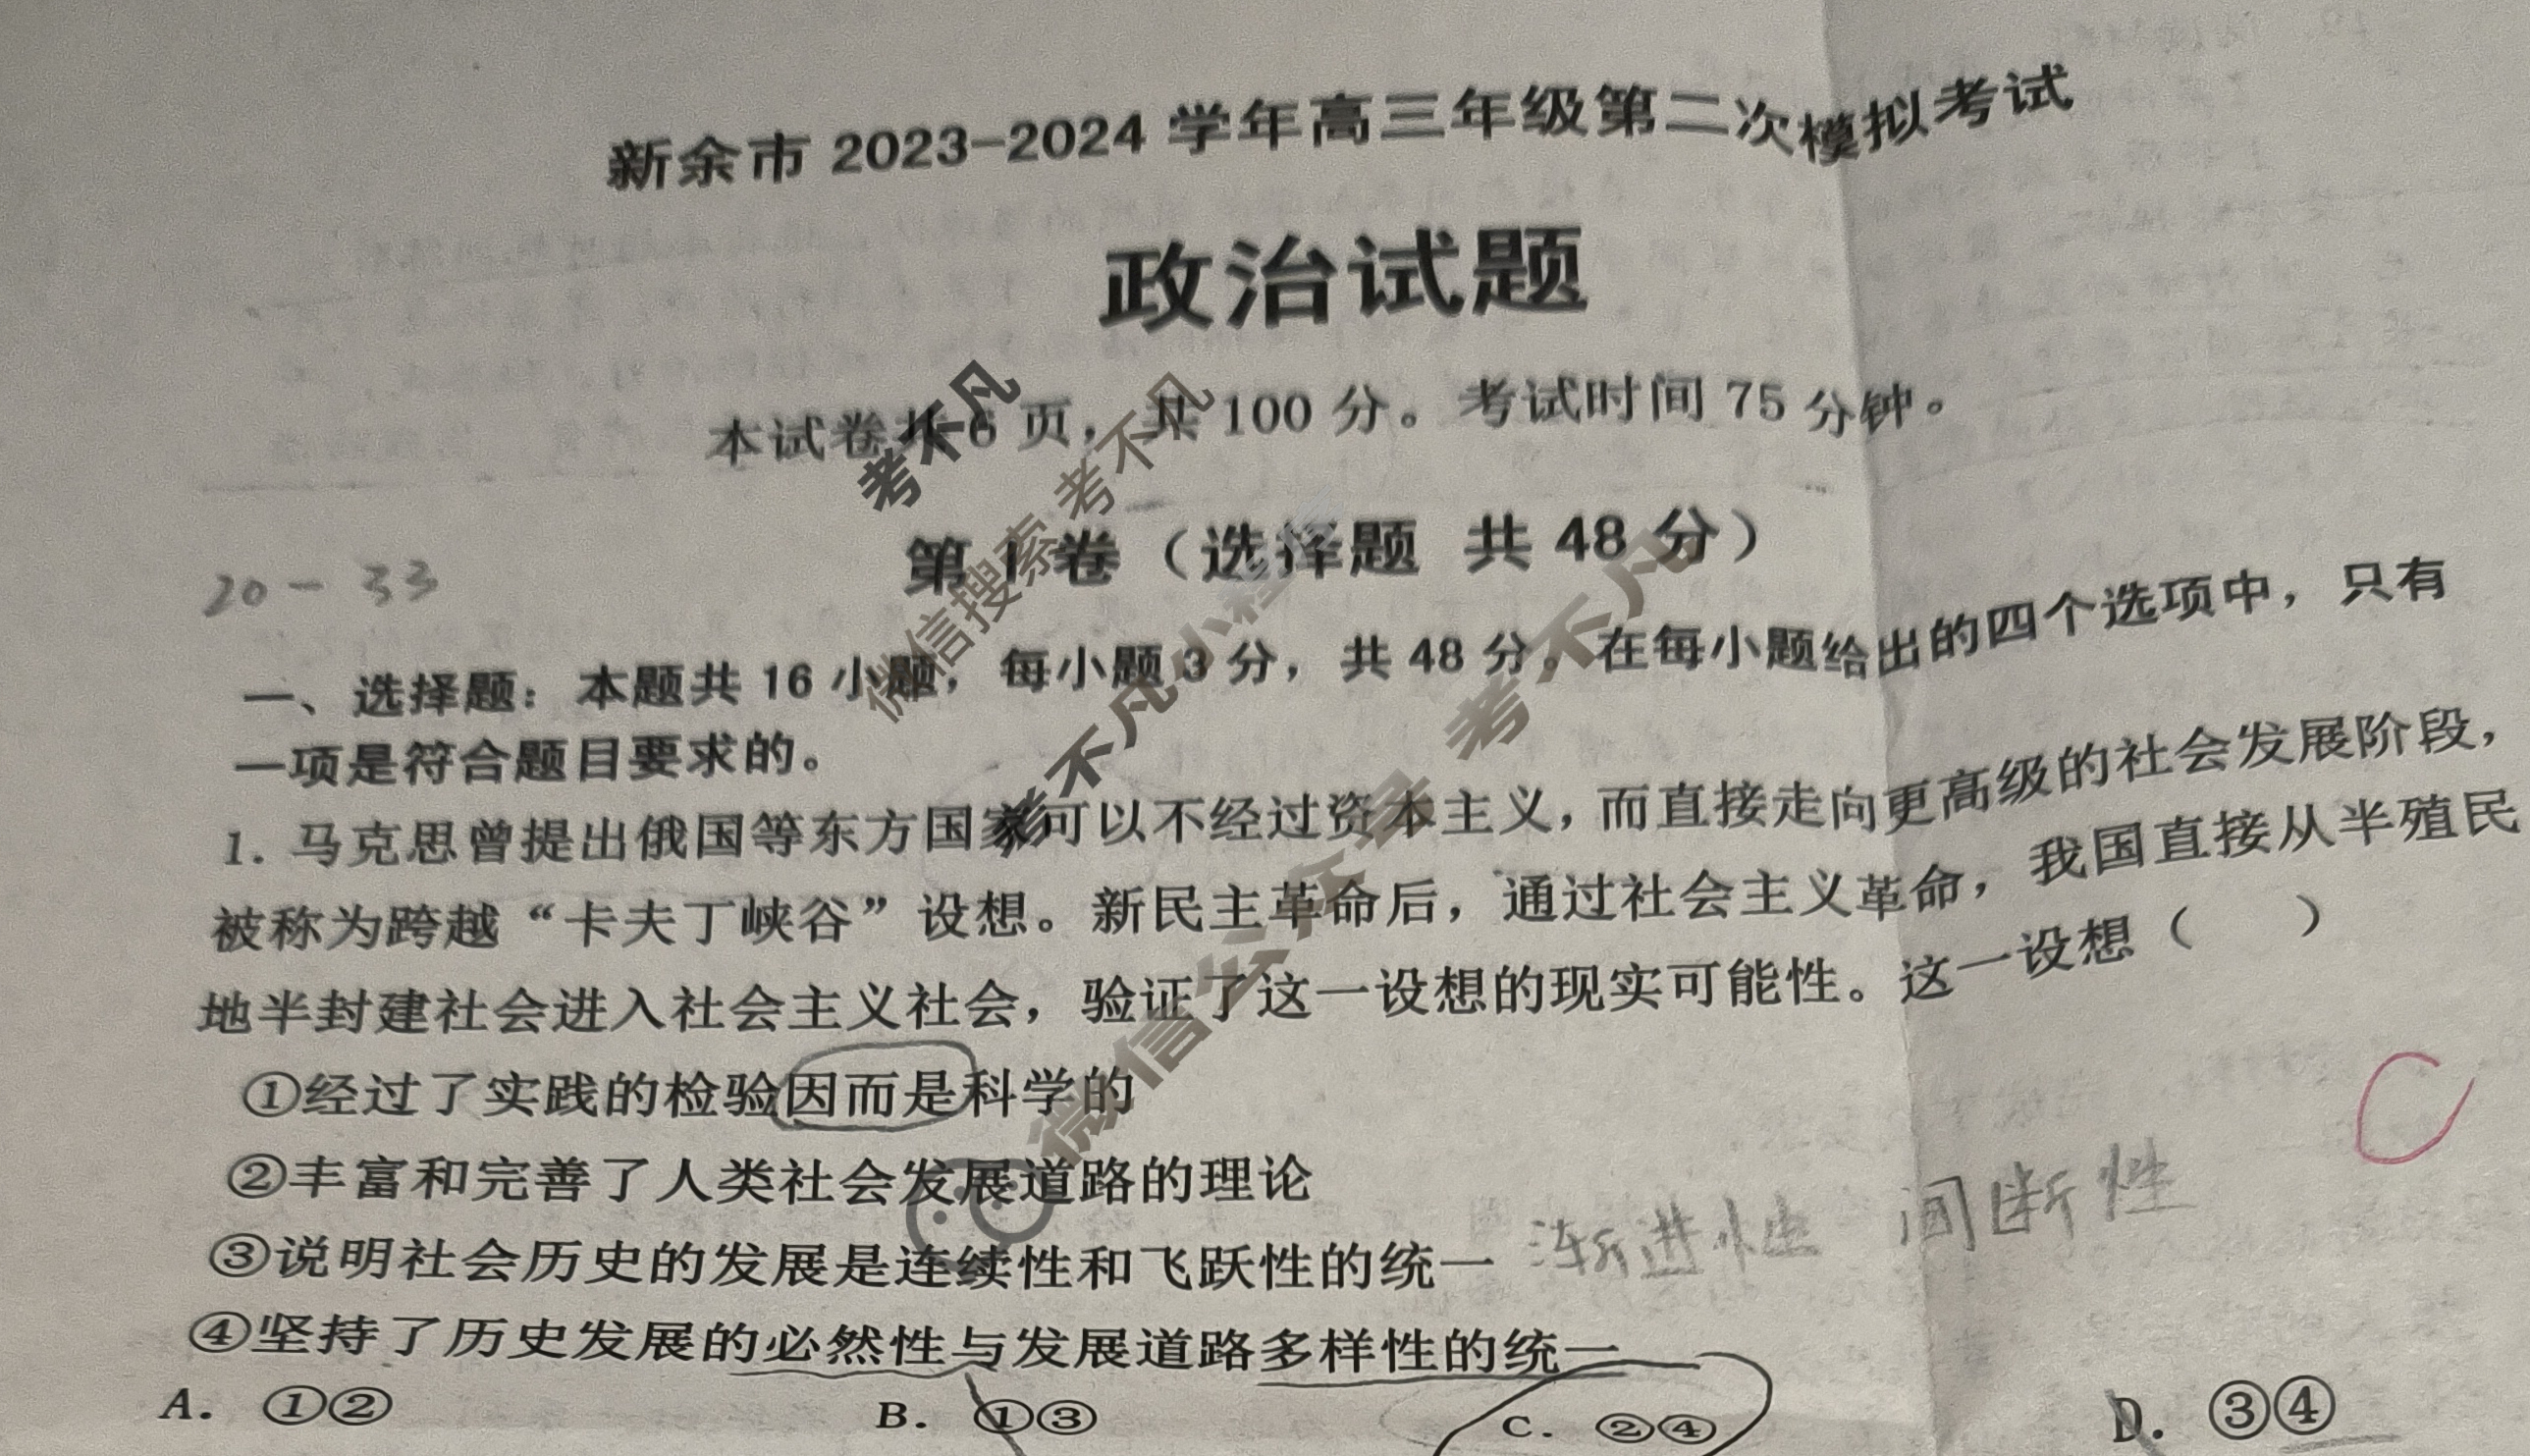 新余市 2023-2024 学年高三年级第二次模拟考试
政治试题
本试卷共 6 页，共 100 分。考试时间 75 分钟。
第 I 卷（选择题 共 48 分）
20 - 33
一、选择题：本题共 16 小题，每小题 3 分，共 48 分。在每小题给出的四个选项中，只有
一项是符合题目要求的。
1. 马克思曾提出俄国等东方国家可以不经过资本主义，而直接走向更高级的社会发展阶段，
被称为跨越“卡夫丁峡谷”设想。新民主革命后，通过社会主义革命，我国直接从半殖民
地半封建社会进入社会主义社会，验证了这一设想的现实可能性。这一设想（　　）
①经过了实践的检验因而是科学的
C
②丰富和完善了人类社会发展道路的理论
③说明社会历史的发展是连续性和飞跃性的统一 渐进性 间断性
④坚持了历史发展的必然性与发展道路多样性的统一
A. ①② B. ①③ C. ②④ D. ③④
考不凡
微信搜索 考不凡
考不凡小程序
微信公众号 考不凡